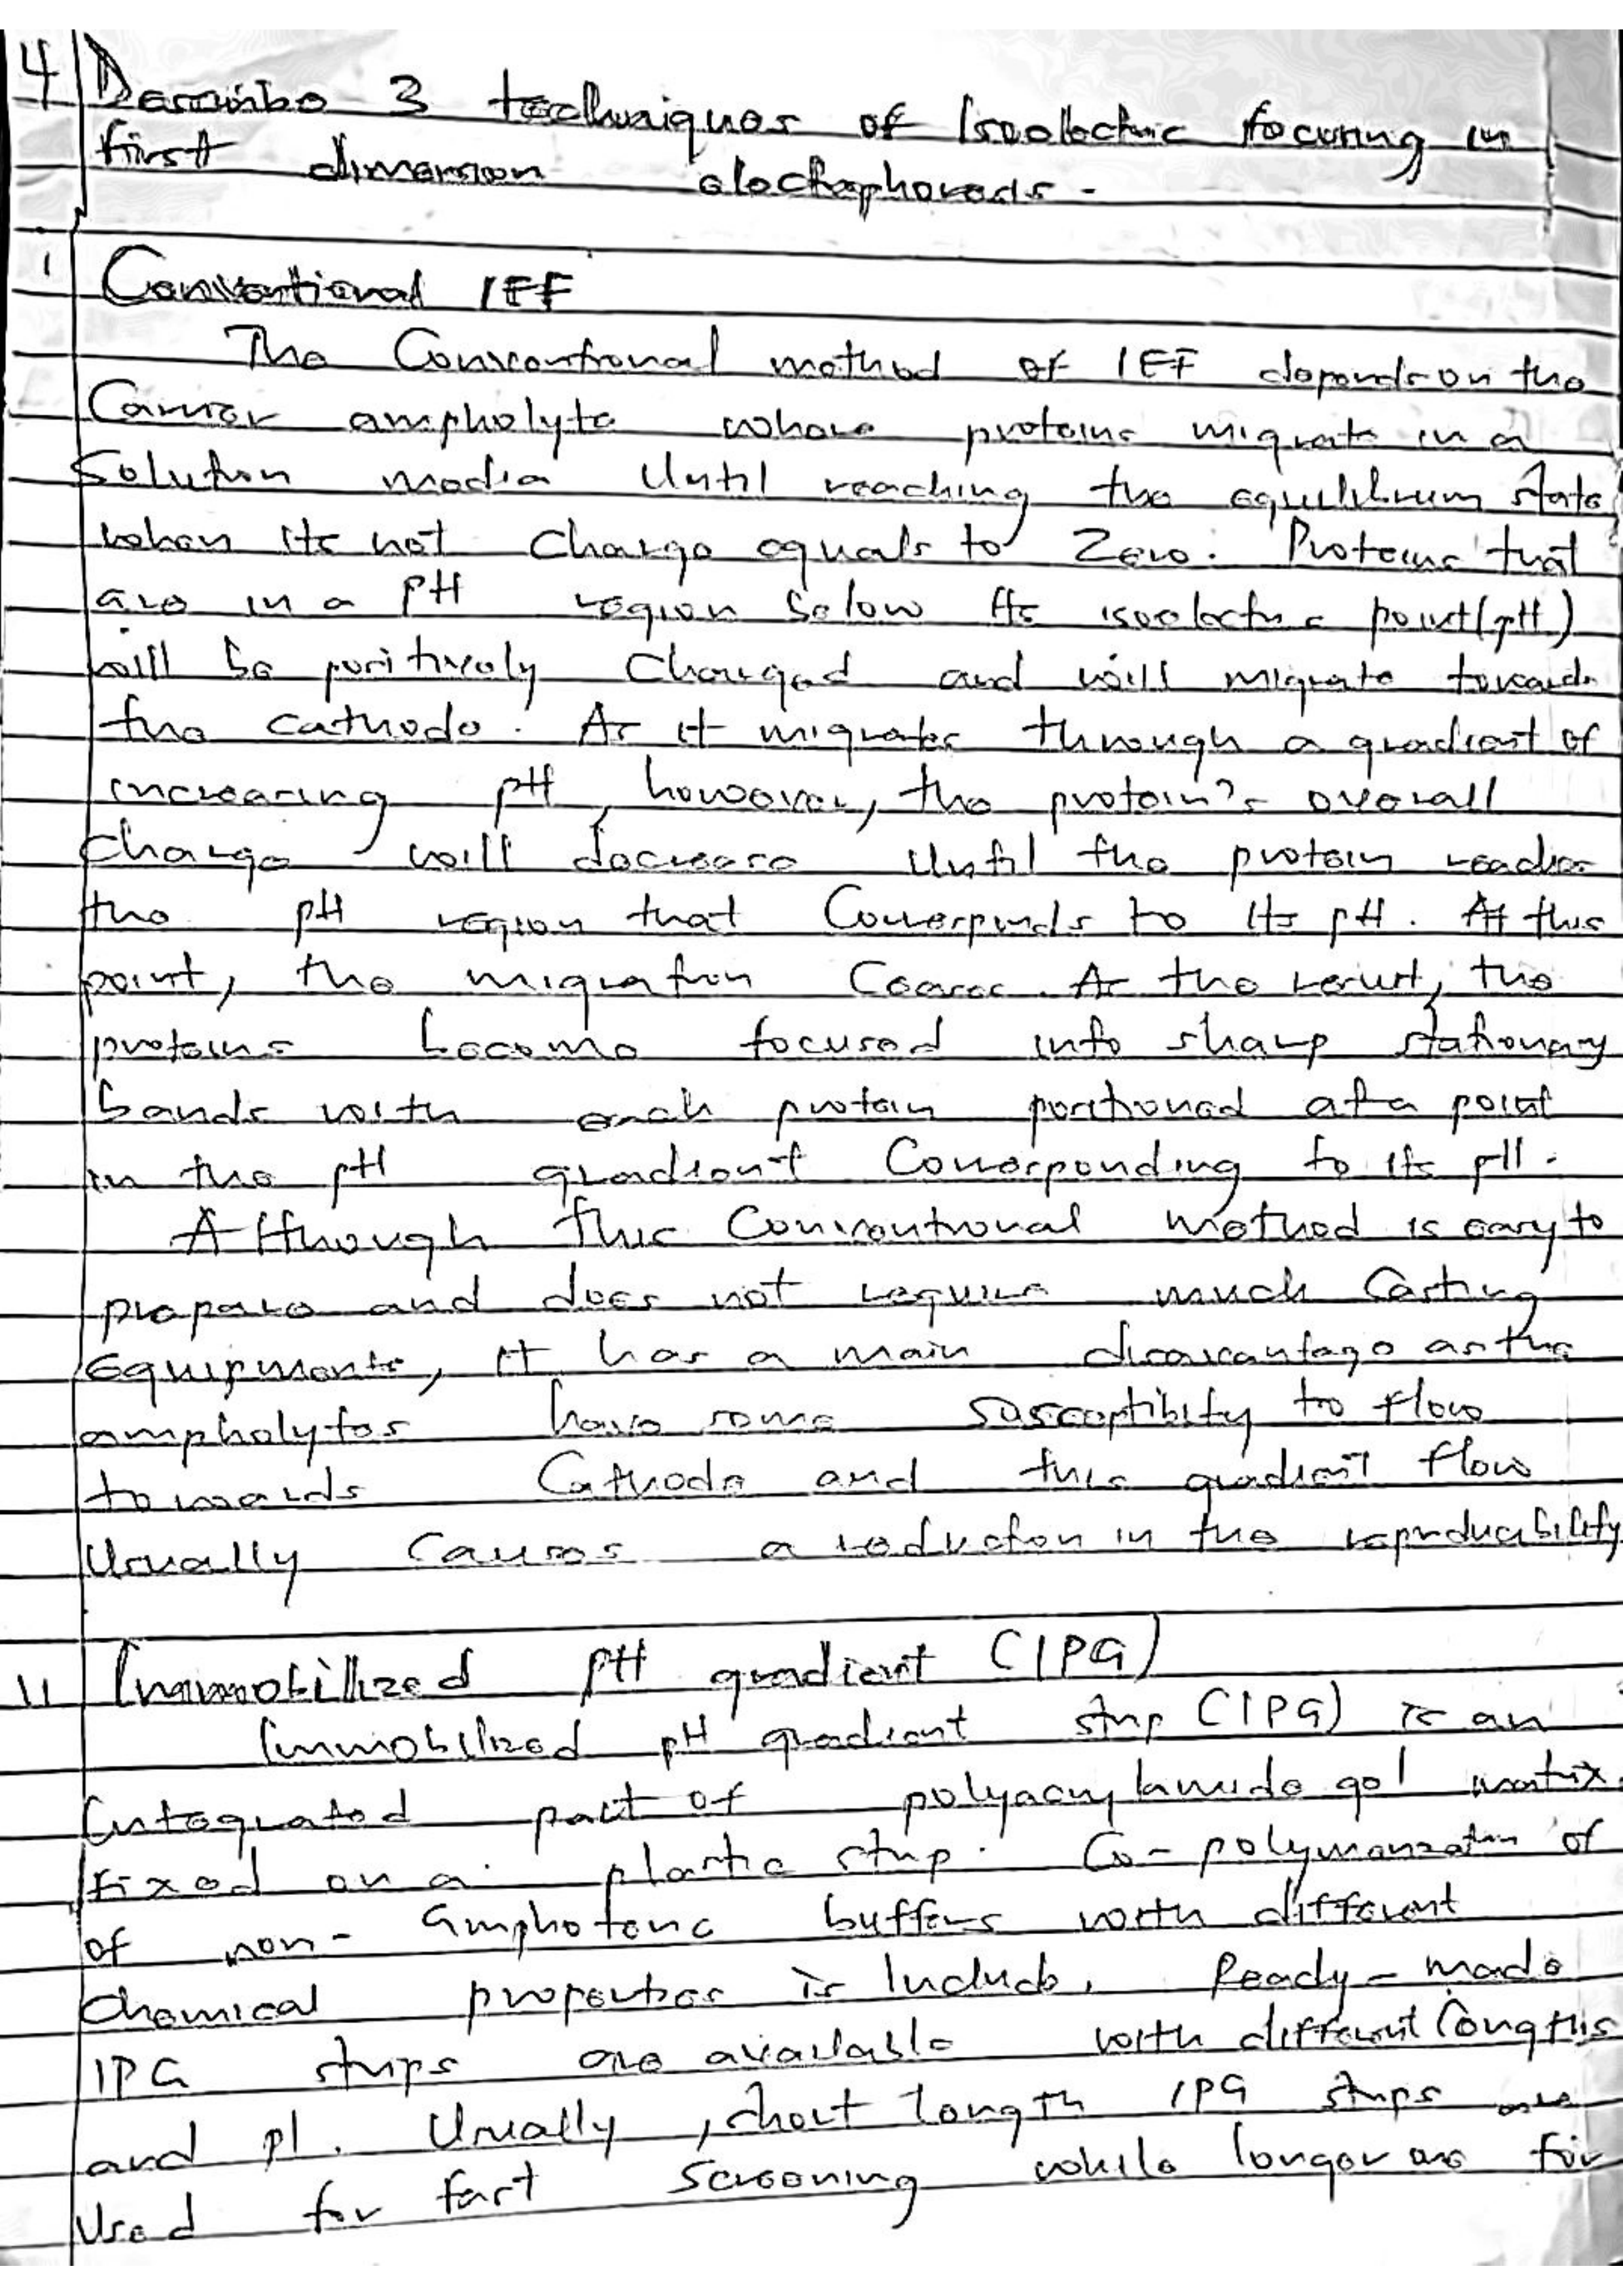 4 Describe 3 techniques of Isoelectric focusing in
first dimension electrophoresis.
1 Conventional IEF
The Conventional method of IEF depends on the
Carrier ampholyte where proteins migrate in a
Solution media Until reaching the equilibrium state,
when its net charge equals to Zero. Proteins that
are in a pH region below its isoelectric point (pH)
will be positively Charged and will migrate towards
the cathode. As it migrates through a gradient of
increasing pH, however, the protein's overall
charge will decrease Until the protein reaches
the pH region that Corresponds to its pH. At this
point, the migration Ceases. As the result, the
proteins become focused into sharp stationary
bands with each protein positioned at a point
in the pH gradient Corresponding to its pH.
Although this Conventional method is easy to
prepare and does not require much Casting
Equipments, it has a main disadvantage as the
ampholytes have some susceptibility to flow
towards Cathode and this gradient flow
Usually Causes a reduction in the reproducibility
11 Immobilized pH gradient (IPG)
Immobilized pH gradient strip (IPG) is an
Integrated part of polyacrylamide gel matrix
fixed on a plastic strip. Co-polymerization of
of non-amphoteric buffers with different
Chemical properties is Include. Ready-made
IPG strips are available with different lengths
and pI. Usually, short length IPG strips are
Used for fast screening while longer are for